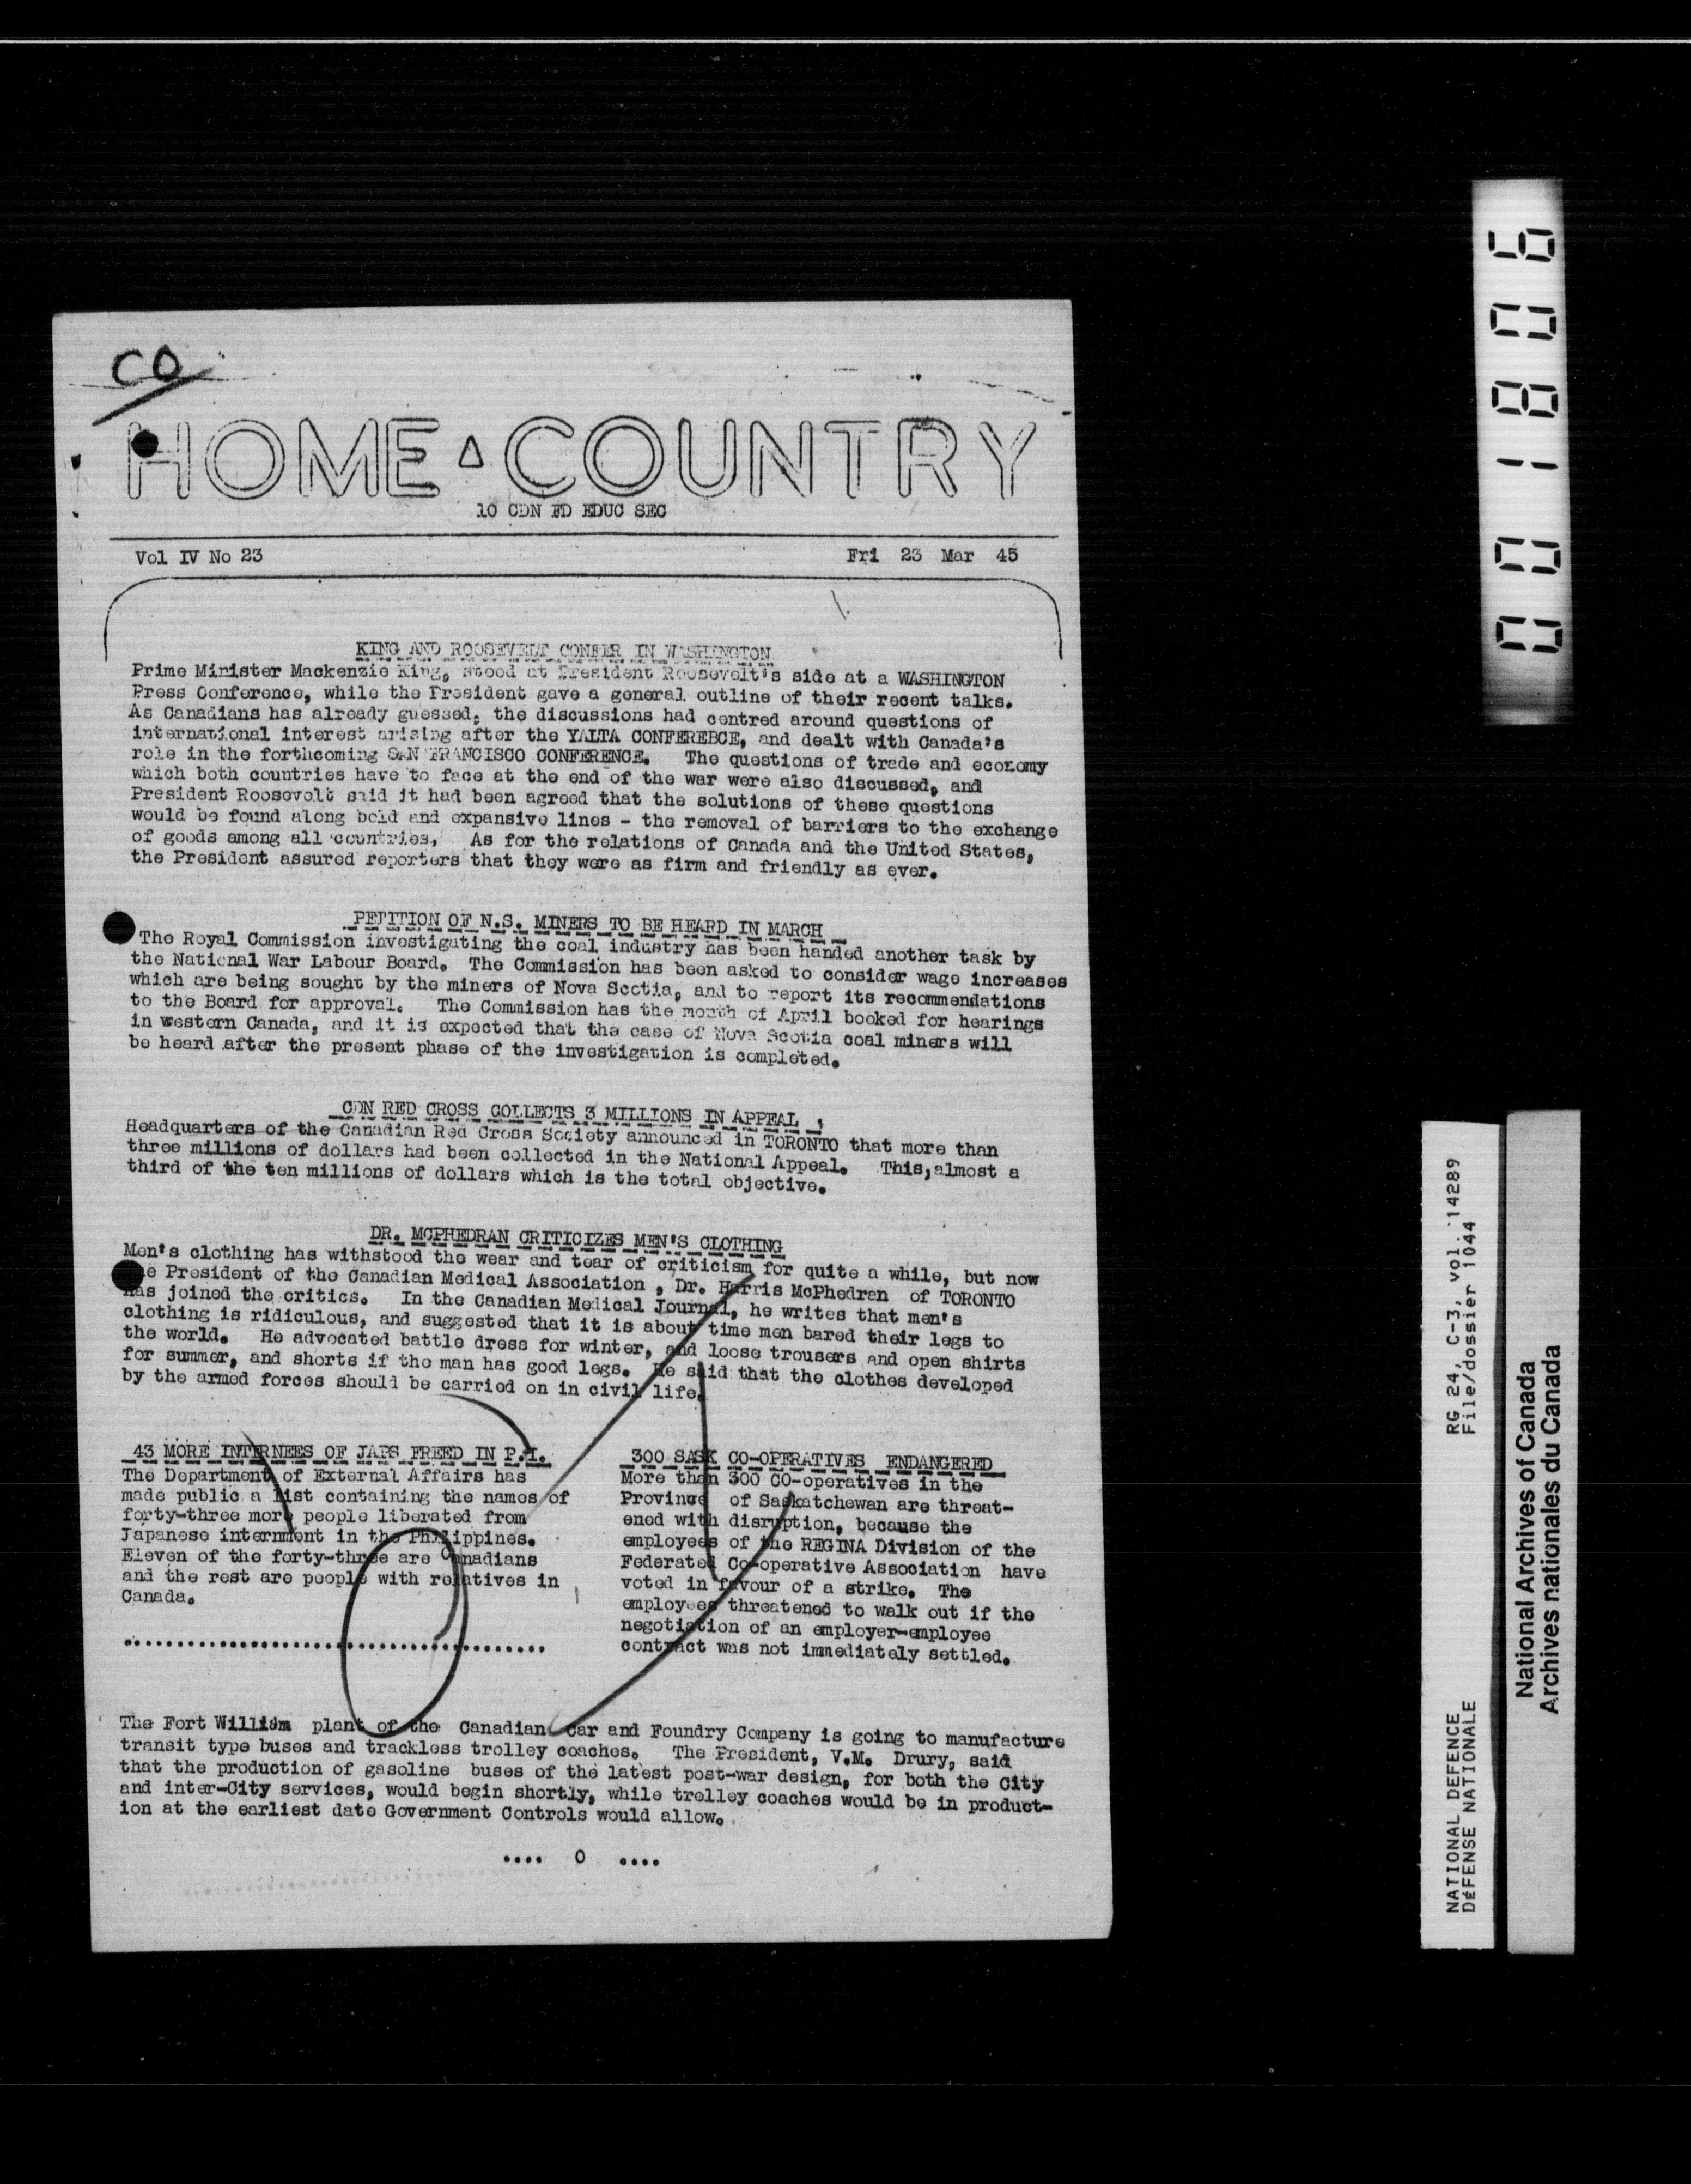 CO
HOME COUNTRY
10 CDN FD EDUC SEC
Vol IV No 23 Fri 23 Mar 45
KING AND ROOSEVELT CONFER IN WASHINGTON
Prime Minister Mackenzie King, stood at President Roosevelt's side at a WASHINGTON
Press Conference, while the President gave a general outline of their recent talks.
As Canadians has already guessed, the discussions had centred around questions of
international interest arising after the YALTA CONFEREBCE, and dealt with Canada's
role in the forthcoming SAN FRANCISCO CONFERENCE. The questions of trade and economy
which both countries have to face at the end of the war were also discussed, and
President Roosevelt said it had been agreed that the solutions of these questions
would be found along bold and expansive lines - the removal of barriers to the exchange
of goods among all countries. As for the relations of Canada and the United States,
the President assured reporters that they were as firm and friendly as ever.
PETITION OF N.S. MINERS TO BE HEARD IN MARCH
The Royal Commission investigating the coal industry has been handed another task by
the National War Labour Board. The Commission has been asked to consider wage increases
which are being sought by the miners of Nova Scotia, and to report its recommendations
to the Board for approval. The Commission has the month of April booked for hearings
in western Canada, and it is expected that the case of Nova Scotia coal miners will
be heard after the present phase of the investigation is completed.
CDN RED CROSS COLLECTS 3 MILLIONS IN APPEAL
Headquarters of the Canadian Red Cross Society announced in TORONTO that more than
three millions of dollars had been collected in the National Appeal. This,almost a
third of the ten millions of dollars which is the total objective.
DR. MCPHEDRAN CRITICIZES MEN'S CLOTHING
Men's clothing has withstood the wear and tear of criticism for quite a while, but now
e President of the Canadian Medical Association , Dr. Harris McPhedran of TORONTO
has joined the critics. In the Canadian Medical Journal, he writes that men's
clothing is ridiculous, and suggested that it is about time men bared their legs to
the world. He advocated battle dress for winter, and loose trousers and open shirts
for summer, and shorts if the man has good legs. He said that the clothes developed
by the armed forces should be carried on in civil life.
43 MORE INTERNEES OF JAPS FREED IN P.I.
The Department of External Affairs has
made public a list containing the names of
forty-three more people liberated from
Japanese internment in the Philippines.
Eleven of the forty-three are Canadians
and the rest are people with relatives in
Canada.
300 SASK CO-OPERATIVES ENDANGERED
More than 300 CO-operatives in the
Province of Saskatchewan are threat-
ened with disruption, because the
employees of the REGINA Division of the
Federated Co-operative Association have
voted in favour of a strike. The
employees threatened to walk out if the
negotiation of an employer-employee
contract was not immediately settled.
The Fort William plant of the Canadian Car and Foundry Company is going to manufacture
transit type buses and trackless trolley coaches. The President, V.M. Drury, said
that the production of gasoline buses of the latest post-war design, for both the City
and inter-City services, would begin shortly, while trolley coaches would be in product-
ion at the earliest date Government Controls would allow.
.... 0 ....
001806
RG 24, C-3, vol. 14289
File/dossier 1044
NATIONAL DEFENCE
DÉFENSE NATIONALE
National Archives of Canada
Archives nationales du Canada